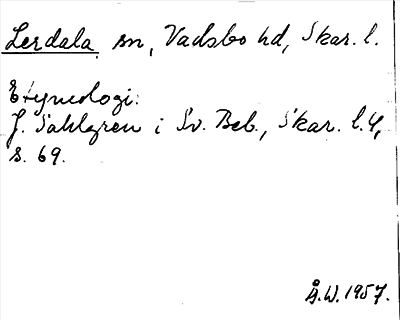 Lerdala sn, Vadsbo hd, Skar. l.
Etymologi:
J. Sahlgren i Sv. Beb., Skar. l. 4,
s. 69.
Å.W. 1957.